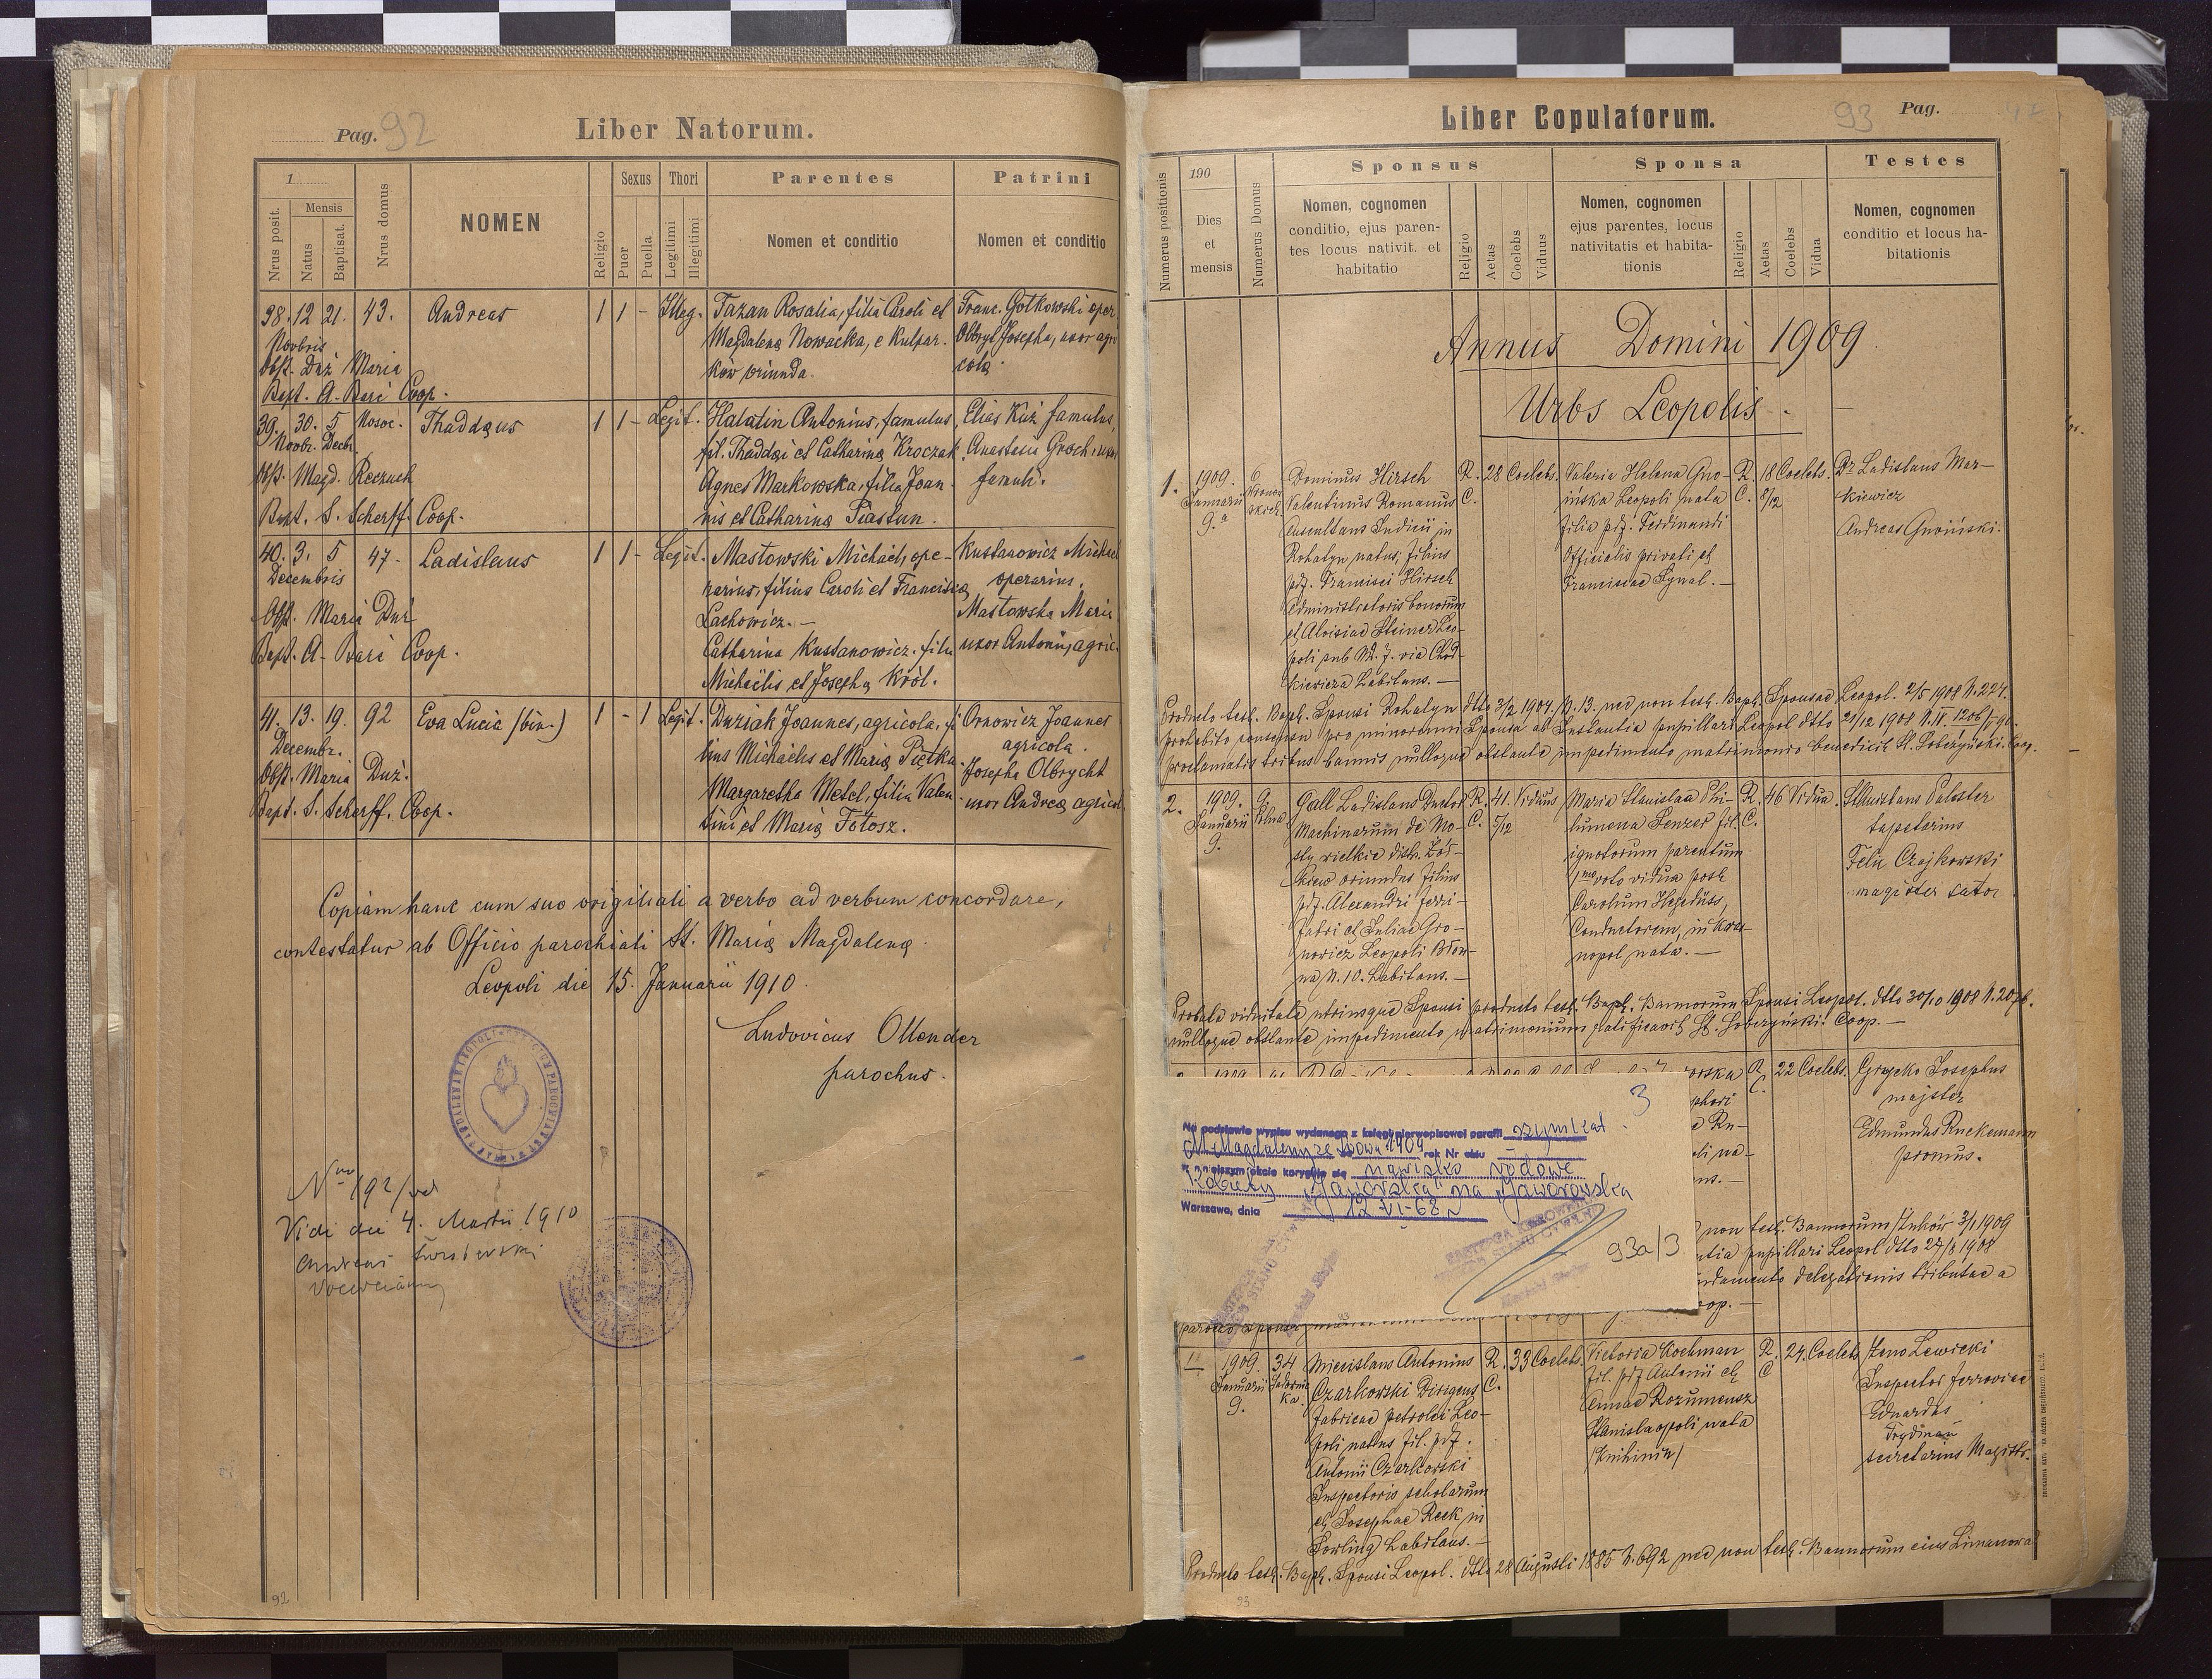 Pag. 92
Liber Natorum.
1
Nrus posit.
Mensis
Natus
Baptisat.
Nrus domus
NOMEN
Religio
Sexus
Puer
Puella
Thori
Legitimi
Illegitimi
Parentes
Nomen et conditio
Patrini
Nomen et conditio
38. 12 21. 43. Andreas 1 1 - Illeg. Tazan Rosalia, filia Caroli et
Magdalena Nowacka, e Kulpar-
ków oriunda.
Franc. Gotkowski oper.
Olbryt Josepha, uxor agri
cola
Novbris
Obst. Duż Maria
Bapt. A. Bari Coop.
39. 30. 5 Nosoc. Thaddæus 1 1 - Legit. Halatin Antonius, famulus,
fil. Thaddæi et Catharinæ Kroczak
Agnes Markowska, filia Joan-
nis et Catharinæ Piastun.
Elias Kuż famulus,
Anastasia Groch, uxor
famuli.
Novbr. Decbr.
Obst. Magd. Reczuch
Bapt. S. Scherff. Coop.
40. 3. 5 47- Ladislaus 1 1 - Legit. Mastowski Michael, ope-
rarius, filius Caroli et Franciscæ
Lachowicz.-
Catharina Kustanowicz. filia
Michaëlis et Josepha Król.
Kustanowicz Michael
operarius.
Mastowska Maria
uxor Antonii, agric.
Decembris
Obst. Maria Duż
Bapt. A. Bari Coop.
41. 13. 19. 92 Eva Lucia (bin.) 1 - 1 Legit. Duziak Joannes, agricola, fi
lius Michaëlis et Mariæ Piętka.
Margaretha Metel, filia Valen
tini et Mariæ Fotosz.
Ornowicz Joannes
agricola.
Josepha Olbrycht
uxor Andreæ agricol
Decembr.
Obst. Maria Duż.
Bapt. S. Scherff. Coop.
Copiam hanc cum suo originali a verbo ad verbum concordare,
contestatur ab Officio parochiali St. Mariæ Magdalenæ
Leopoli die 15. Januarii 1910.
Ludovicus Ollender
parochus.
192/
Vidi die 4. Martii 1910
92
Liber Copulatorum.
93 Pag.
Numerus positionis
190
Dies
et
mensis
Numerus Domus
Sponsus
Nomen, cognomen
conditio, ejus paren-
tes locus nativit. et
habitatio
Religio
Aetas
Coelebs
Viduus
Sponsa
Nomen, cognomen
ejus parentes, locus
nativitatis et habita-
tionis
Religio
Aetas
Coelebs
Vidua
Testes
Nomen, cognomen
conditio et locus ha-
bitationis
Annus Domini 1909
Urbs Leopolis.
1. 1909. Januarii 9.a 6
Dominus Hirsch
Valentinus Romanus
Auscultans Judicii in
Rohatyn natus, filius
pdf. Francisci Hirsch
administratoris bonorum
et Aloisiae Steiner Leo-
poli sub N. 7. via Chod-
kiewicza habitans.-
R. C. 28 Coelebs.
Valeria Helena Gno-
ińska Leopoli nata
filia pdf. Ferdinandi
Officialis privati et
Franciscae Synal.-
R. C. 18 8/12 Coelebs.
Dr Ladislaus Mar-
kiewicz
Andreas Gnoiński.
Producto test. Bapt. Sponsi Rohatyn dtto 3/2 1904. N. 13. nec non test. Bapt. Sponsae Leopol. 2/5 1908 N. 224.
prohibito consensu pro minorenni Sponsa ab Instantia pupillari Leopol dtto 21/12 1908
proclamatis tribus bannis nulloque obstante impedimento matrimonio benedicit St. Sobczyński. Coop.
2. 1909. Januarii 9. 9.
Gall Ladislaus Ductor
Machinarum de Mo-
sty wielkie distr. Żół-
kiew oriundus filius
pdf. Alexandri Ferri-
fabri et Juliae Gro-
nowicz Leopoli Błon-
na N. 10. habitans.-
R. C. 41. 5/12 Viduus
Maria Stanislaa Phi-
lumena Senzer fil.
ignotorum parentum
1mo voto vidua post
Carolum Hegedüss,
Conductorem, in
nopol nata.-
R. C. 46 Vidua.
Stanislaus Palester
tapetarius
Felix Czajkowski
magister sutor
Probata viduitate utriusque Sponsi producto test. Bapt. Bannorum Sponsi Leopol. dtto 30/10 1908
nulloque obstante impedimento matrimonium ratificavit St. Sobczyński Coop.-
R. C. 22 Coelebs.
Grycko Josephus
majster
Edmundus Ruckemann
promus.
3
Na podstawie wypisu wydanego z księgi pierwopisowej parafii rzym kat.
M. Magdaleny ze Lwowa 1909 rok Nr aktu
w niniejszym akcie koryguje się nazwisko rodowe
kobiety "Jaworska" na "Jaworowska
Warszawa, dnia 12-VI-68 r
93a/3
non test. Bannorum Stuków 3/1 1909
pupillari Leopol dtto 27/8 1908
delegationis tributae a
Coop.-
1909. Januarii 9. 34
Miecislaus Antonius
Czarkowski Dirigens
fabricae petrolei Leo-
poli natus fil. pdf.
Antonii Czarkowski
Inspectoris scholarum
et Josephae Reck in
Sorling habitans.-
R. C. 33 Coelebs.
Victoria Kochman
fil. pdf Antonii et
Annae Rozumensz
Stanislaopoli nata
/Knihinin/
R. C 24. Coelebs
Steno Lewicki
Inspector ferroviae
Eduardus
Frydman
secretarius Magistr.
Producto test. Bapt. Sponsi Leopol. dtto 28 Augusti 1885 N. 692 nec non test. Bannorum eius Limanowa
93